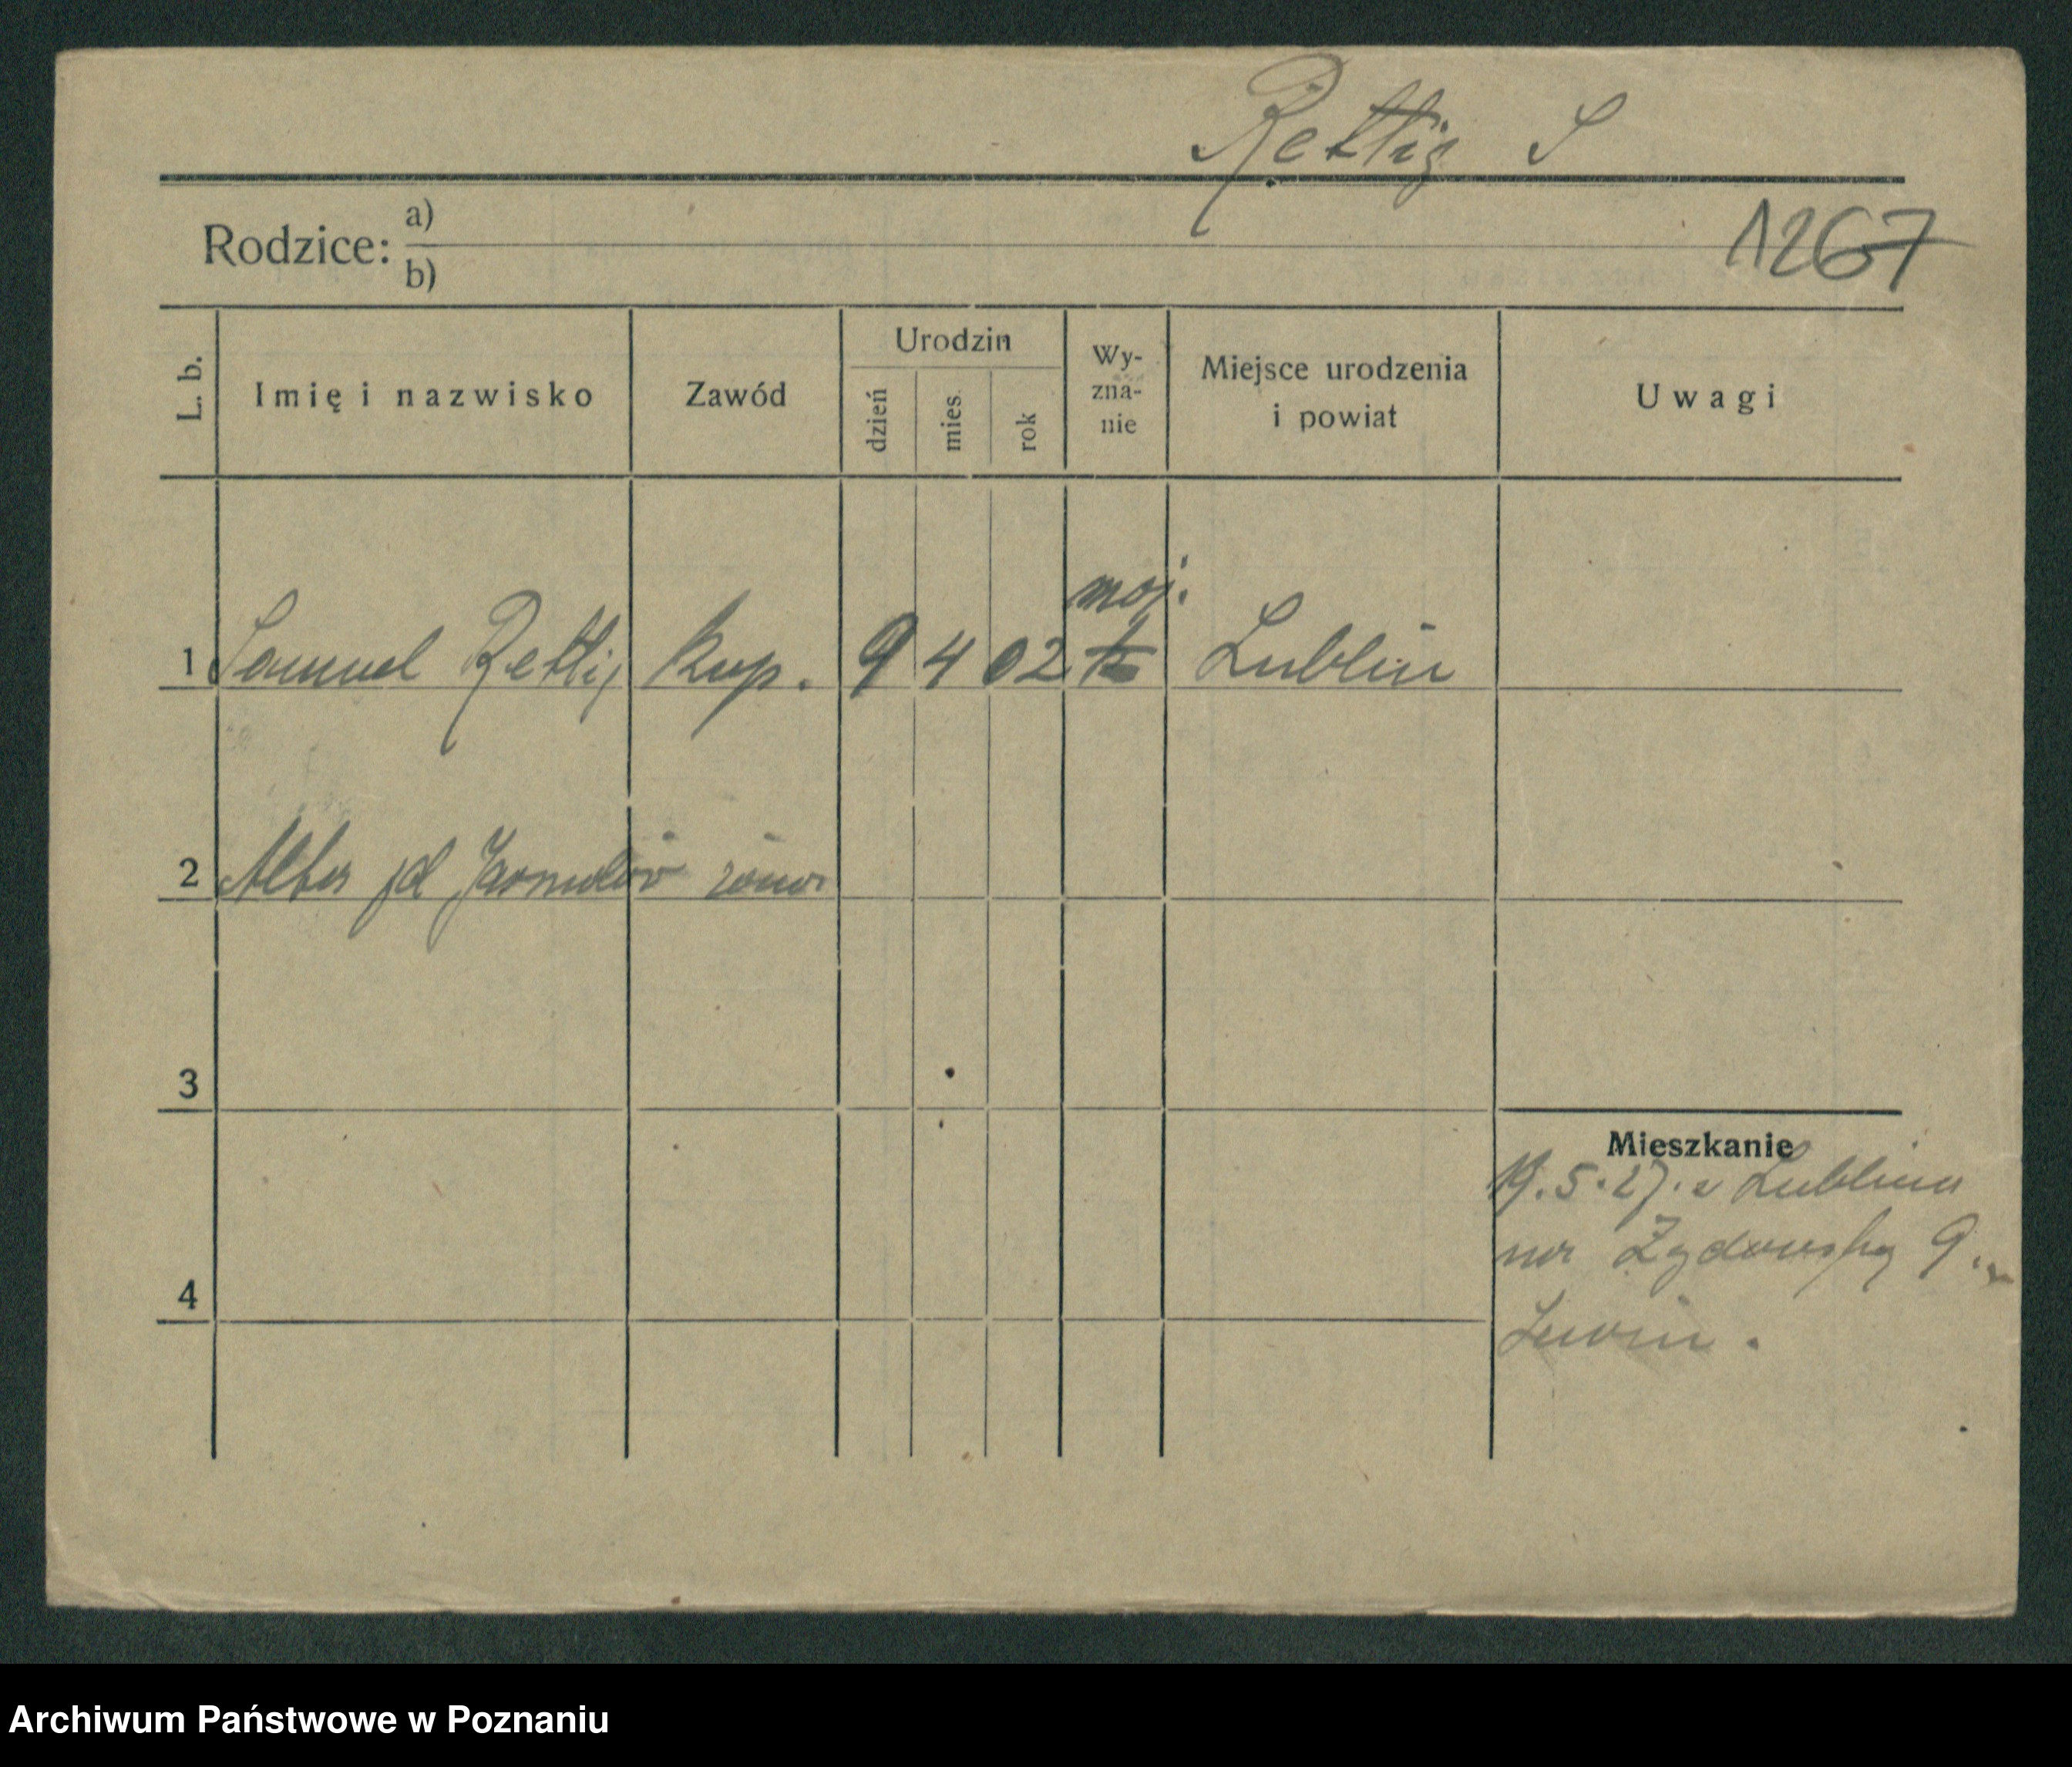 Rettig S
Rodzice: a)
b)
1267
L. b.
Imię i nazwisko
Zawód
Urodzin
dzień
mies.
rok
Wy-
zna-
nie
Miejsce urodzenia
i powiat
Uwagi
moj.
1 Samuel Rettig kup. 9 4 02 Lublin
2
3
4
Mieszkanie
19.5.27. z Lublina
na Żydowską 9
Lewin.
Archiwum Państwowe w Poznaniu